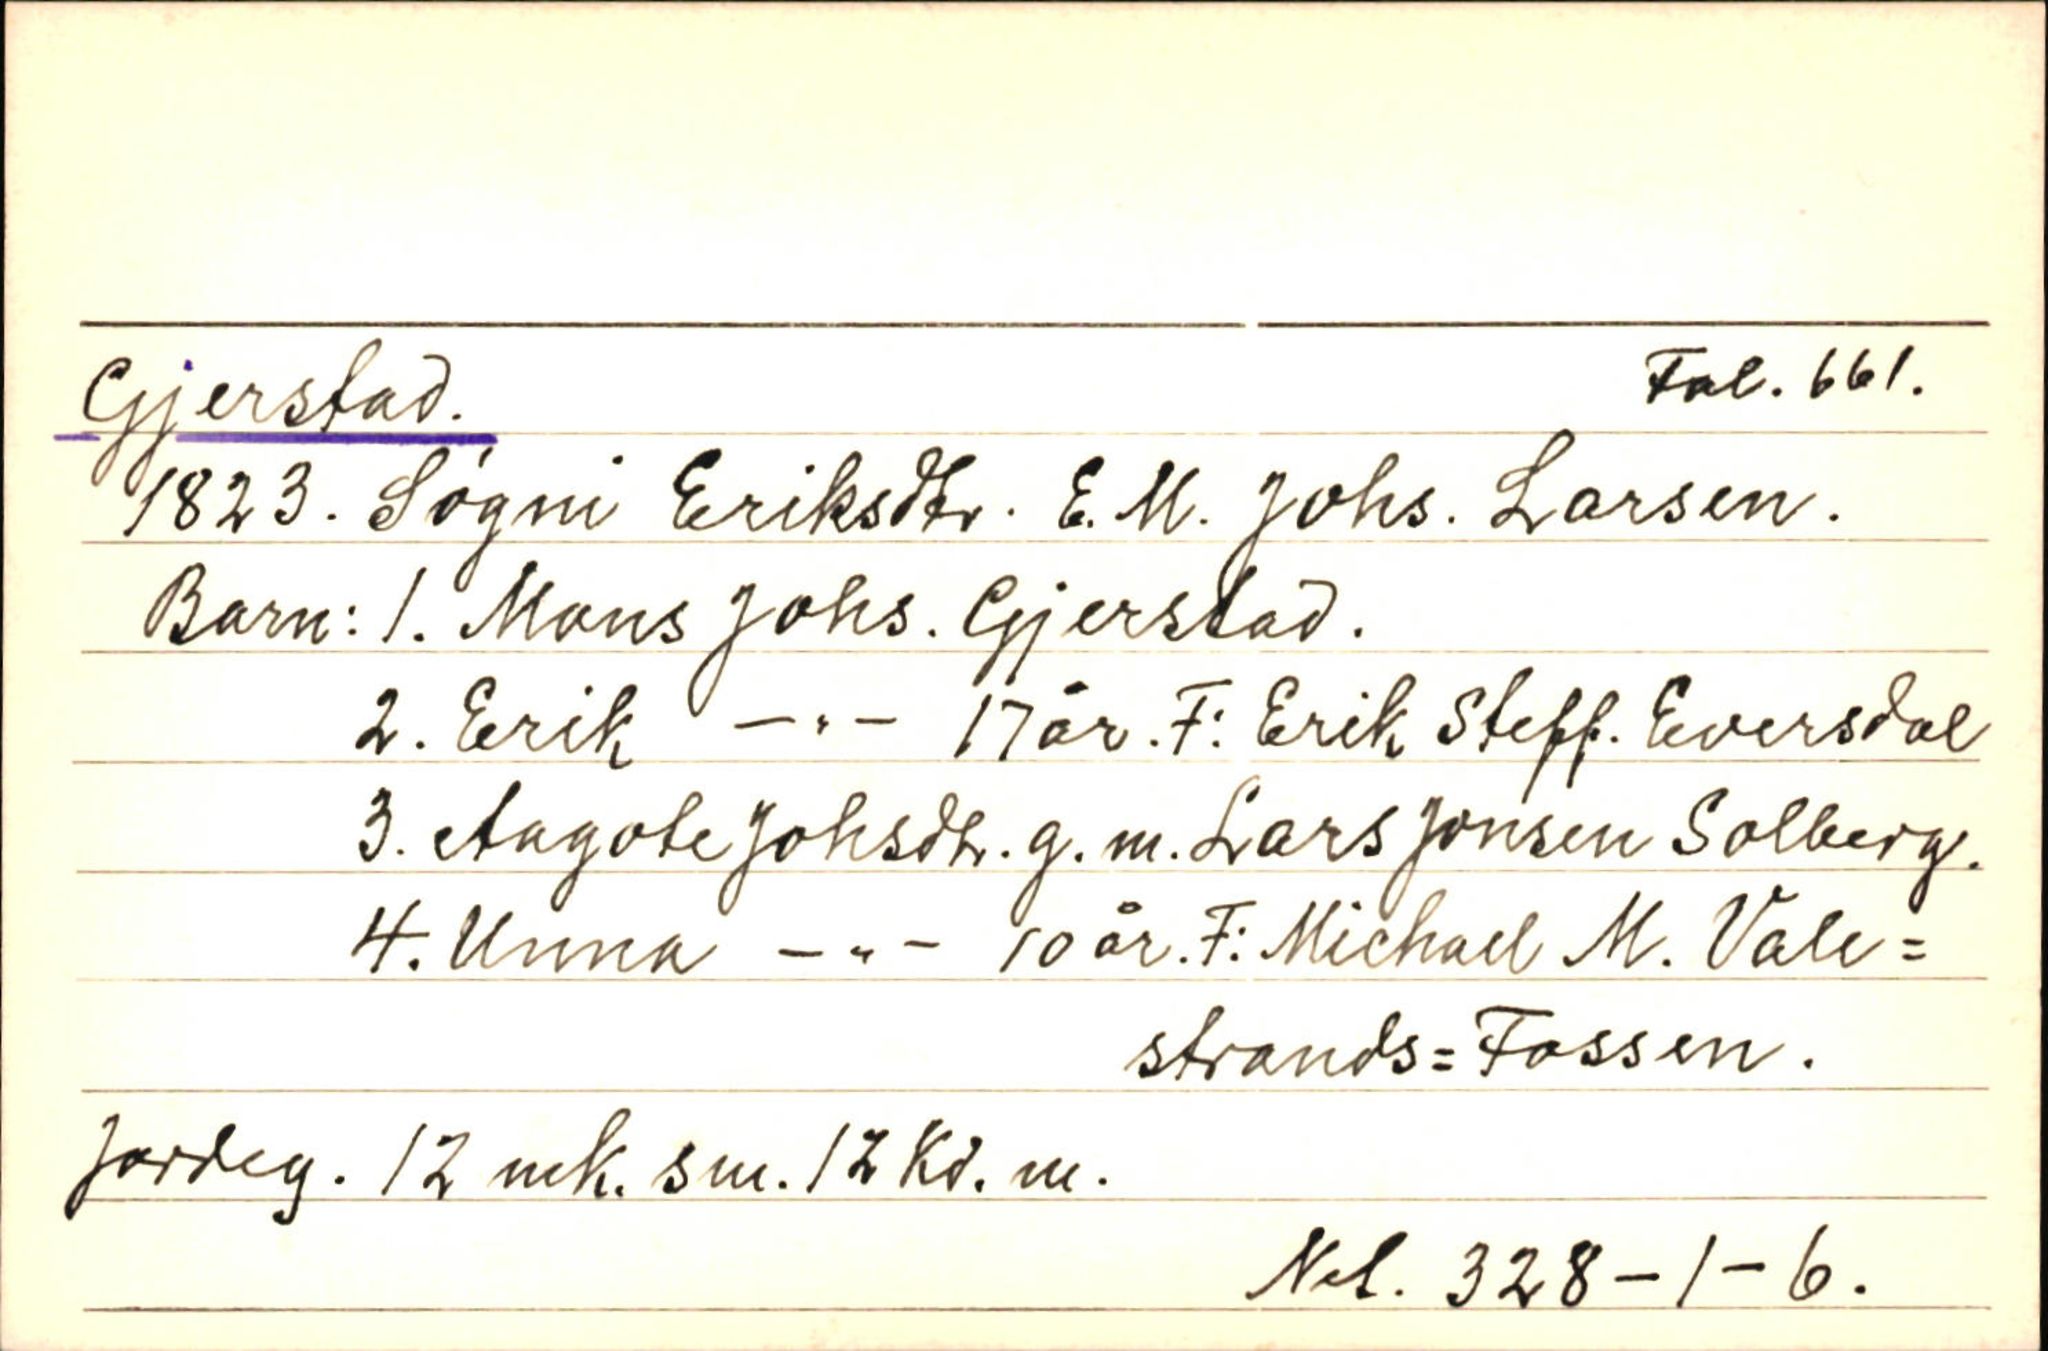 Gjerstad. Fol. 661.
1823. Søgni Eriksdtr. E. M. Johs. Larsen.
Barn: 1. Mons Johs. Gjerstad.
2. Erik —"— 17 år. F: Erik Steff. Eversdal
3. Aagote Johsdtr. g. m. Lars Jonsen Solberg.
4. Unna —"— 10 år. F: Michael M. Vale=
strands=Fossen.
Jordeg. 12 mk. sm. 12 Kd. m.
Net. 328-1-6.